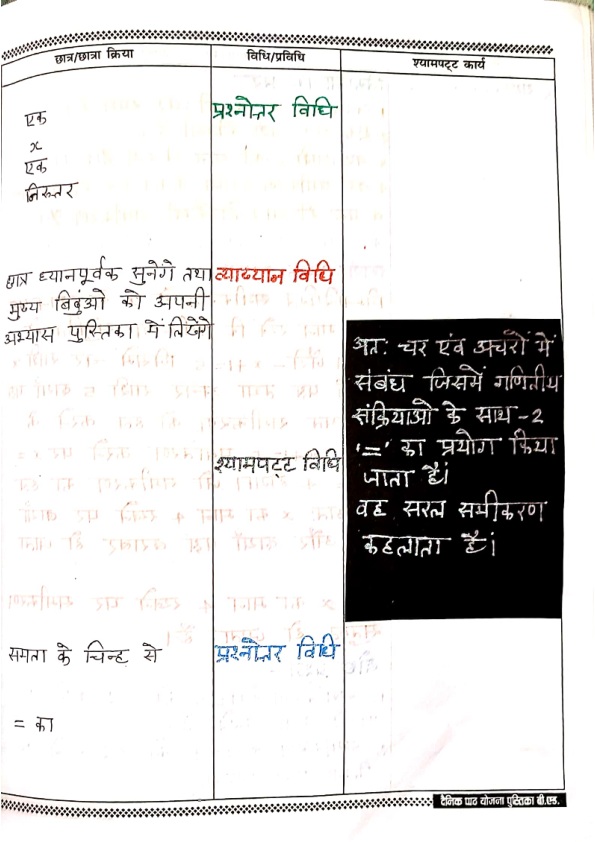 छात्र/छात्रा क्रिया
विधि/प्रविधि
श्यामपट्ट कार्य
एक
x
एक
निरुत्तर
प्रश्नोत्तर विधि
छात्र ध्यानपूर्वक सुनेंगे तथा
मुख्य बिंदुंओ को अपनी
अभ्यास पुस्तिका में लिखेंगे
व्याख्यान विधि
श्यामपट्ट विधि
अत: चर एंव अचरों में
संबंध जिसमें गणितीय
संक्रियाओ के साथ-2
'=' का प्रयोग किया
जाता है।
वह सरल समीकरण
कहलाता है।
समता के चिन्ह से
= का
प्रश्नोत्तर विधि
दैनिक पाठ योजना पुस्तिका बी.एड.